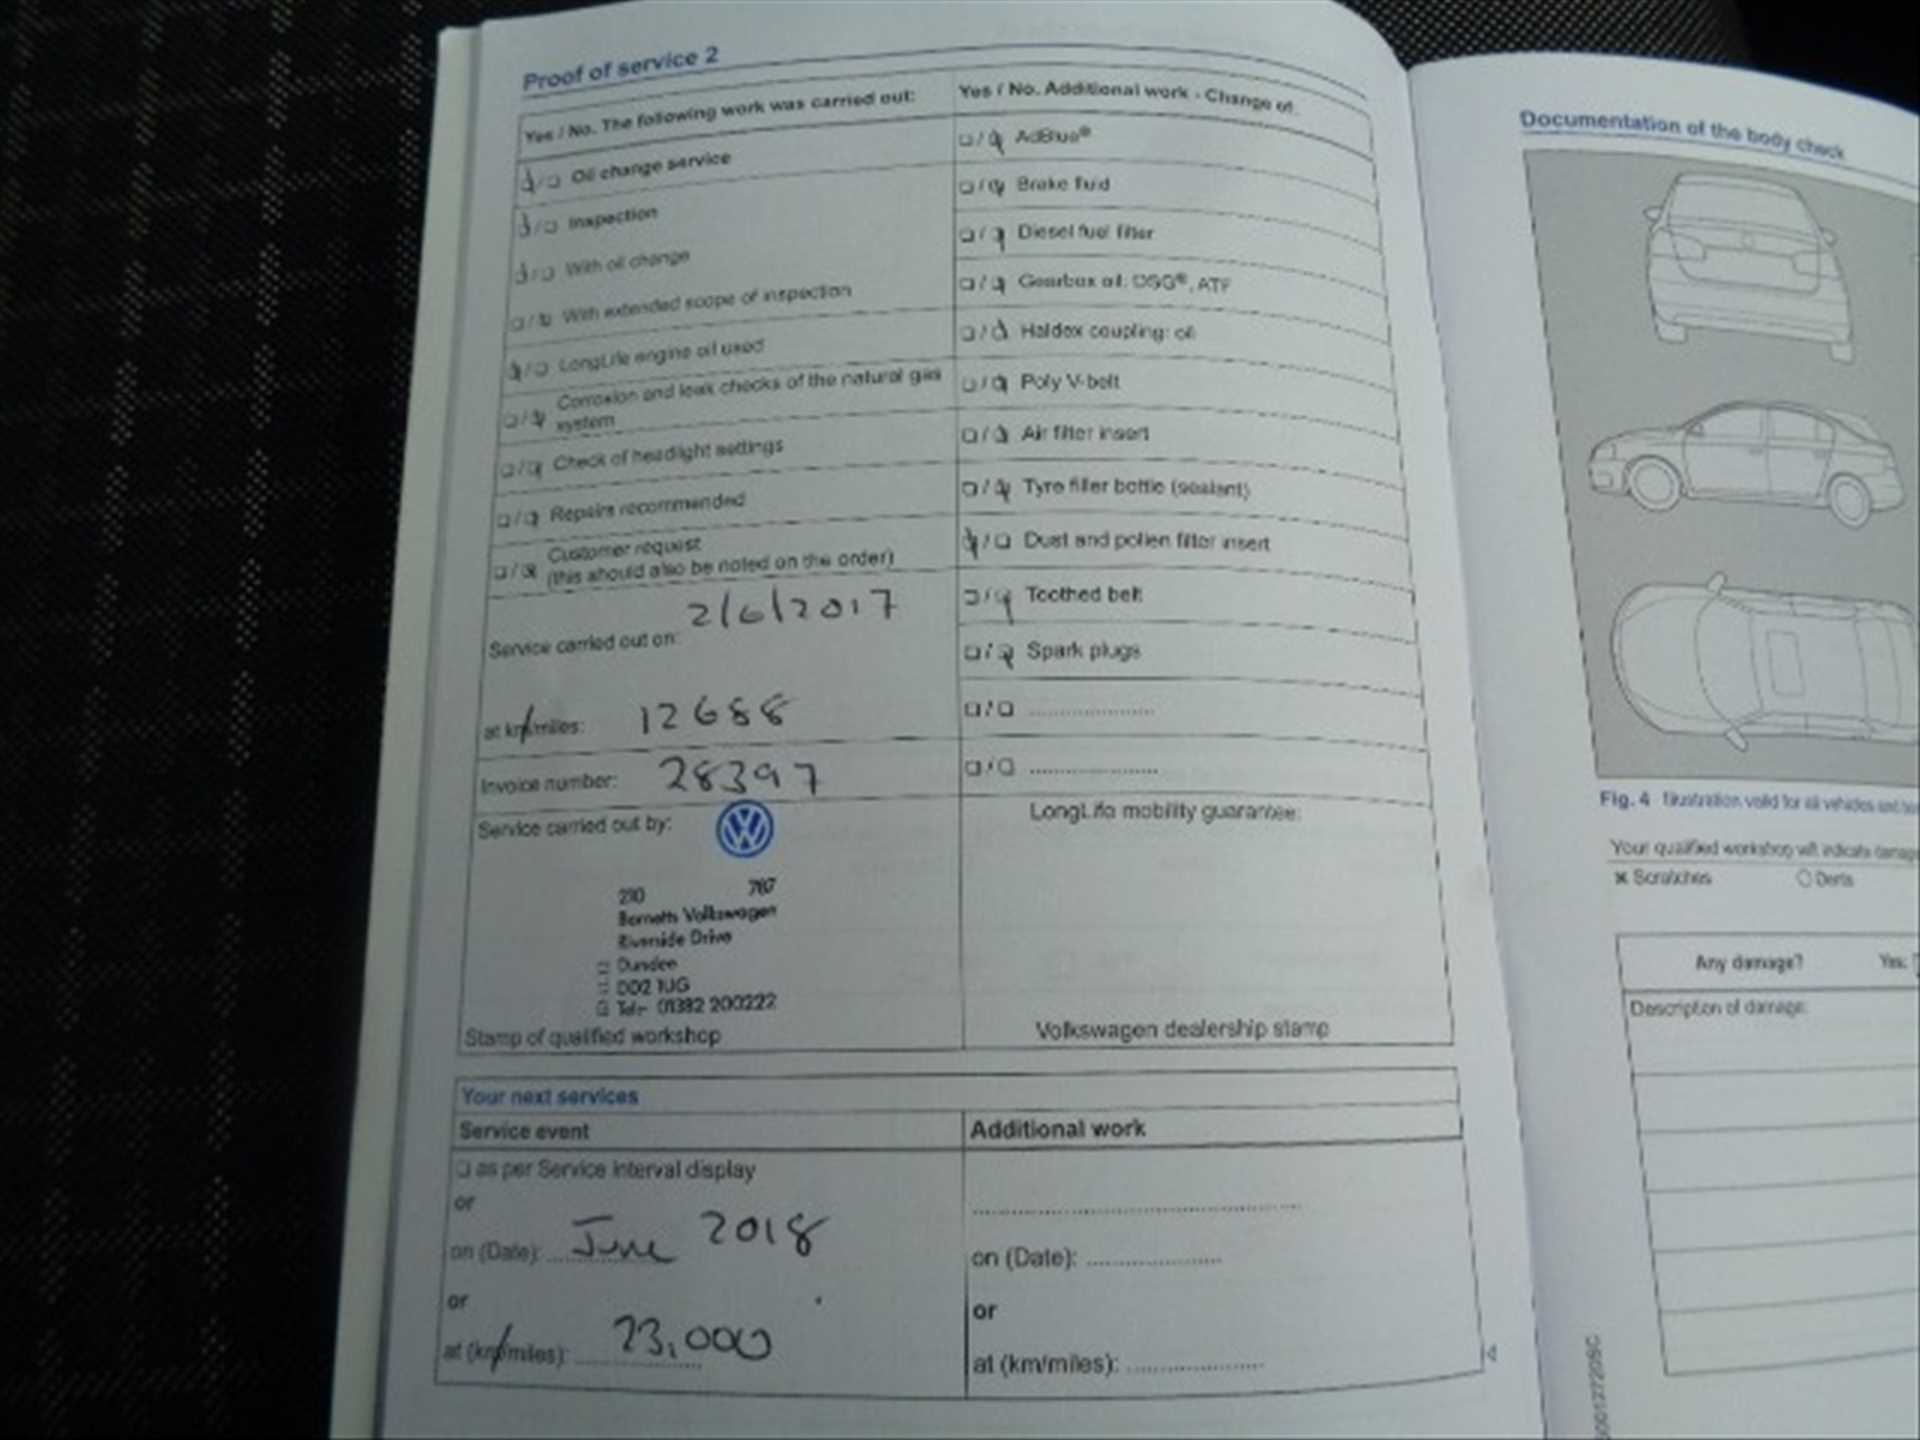 Proof of service 2
Yes / No. The following work was carried out:
Oil change service
Inspection
With oil change
With extended scope of inspection
LongLife engine oil used
Corrosion and leak checks of the natural gas
system
Check of headlight settings
Repairs recommended
Customer request
(this should also be noted on the order)
Service carried out on: 2/6/2017
at km/miles: 12688
Invoice number: 28397
Service carried out by:
210 787
Barnetts Volkswagen
Riverside Drive
Dundee
DD2 1UG
Tel:- 01382 200222
Stamp of qualified workshop
Yes / No. Additional work - Change of:
AdBlue®
Brake fluid
Diesel fuel filter
Gearbox oil: DSG®, ATF
Haldex coupling: oil
Poly V-belt
Air filter insert
Tyre filler bottle (sealant)
Dust and pollen filter insert
Toothed belt
Spark plugs
LongLife mobility guarantee:
Volkswagen dealership stamp
Your next services
Service event
as per Service interval display
or
on (Date): June 2018
or
at (km/miles): 23,000
Additional work
on (Date):
or
at (km/miles):
Documentation of the body check
Fig. 4 Illustration valid for all vehicles and
Your qualified workshop will indicate damage
Scratches Dents
Any damage? Yes:
Description of damage: